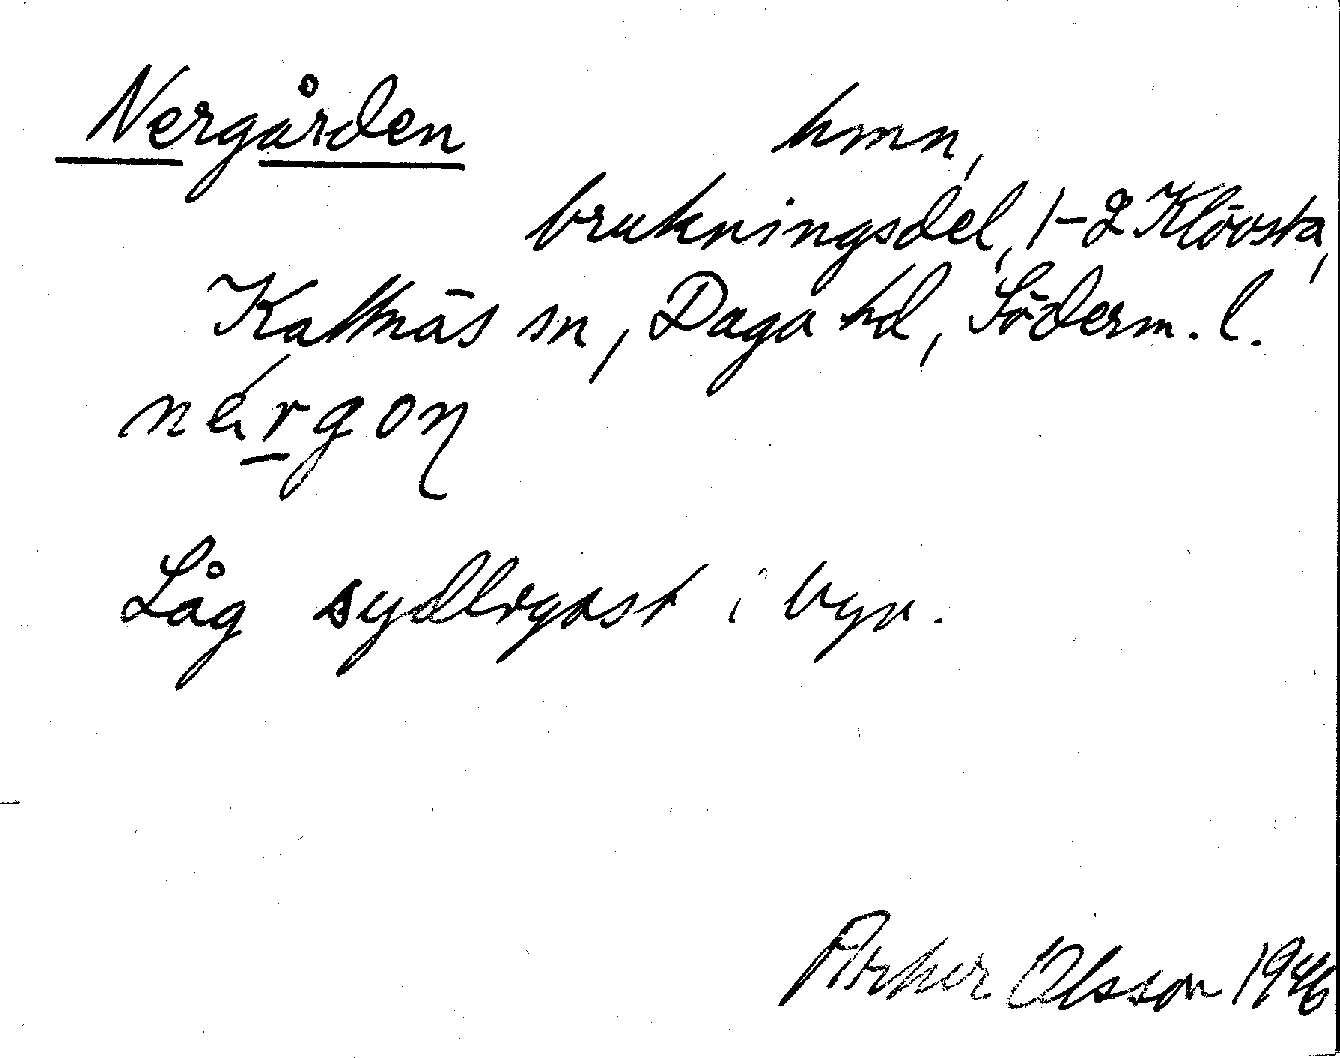 Nergården hmn,
brukningsdel, 1-2 Klövsta,
Kattnäs sn, Daga hd, Söderm. l.
nérgon
Låg sydligast i byn.
Olsson 1946